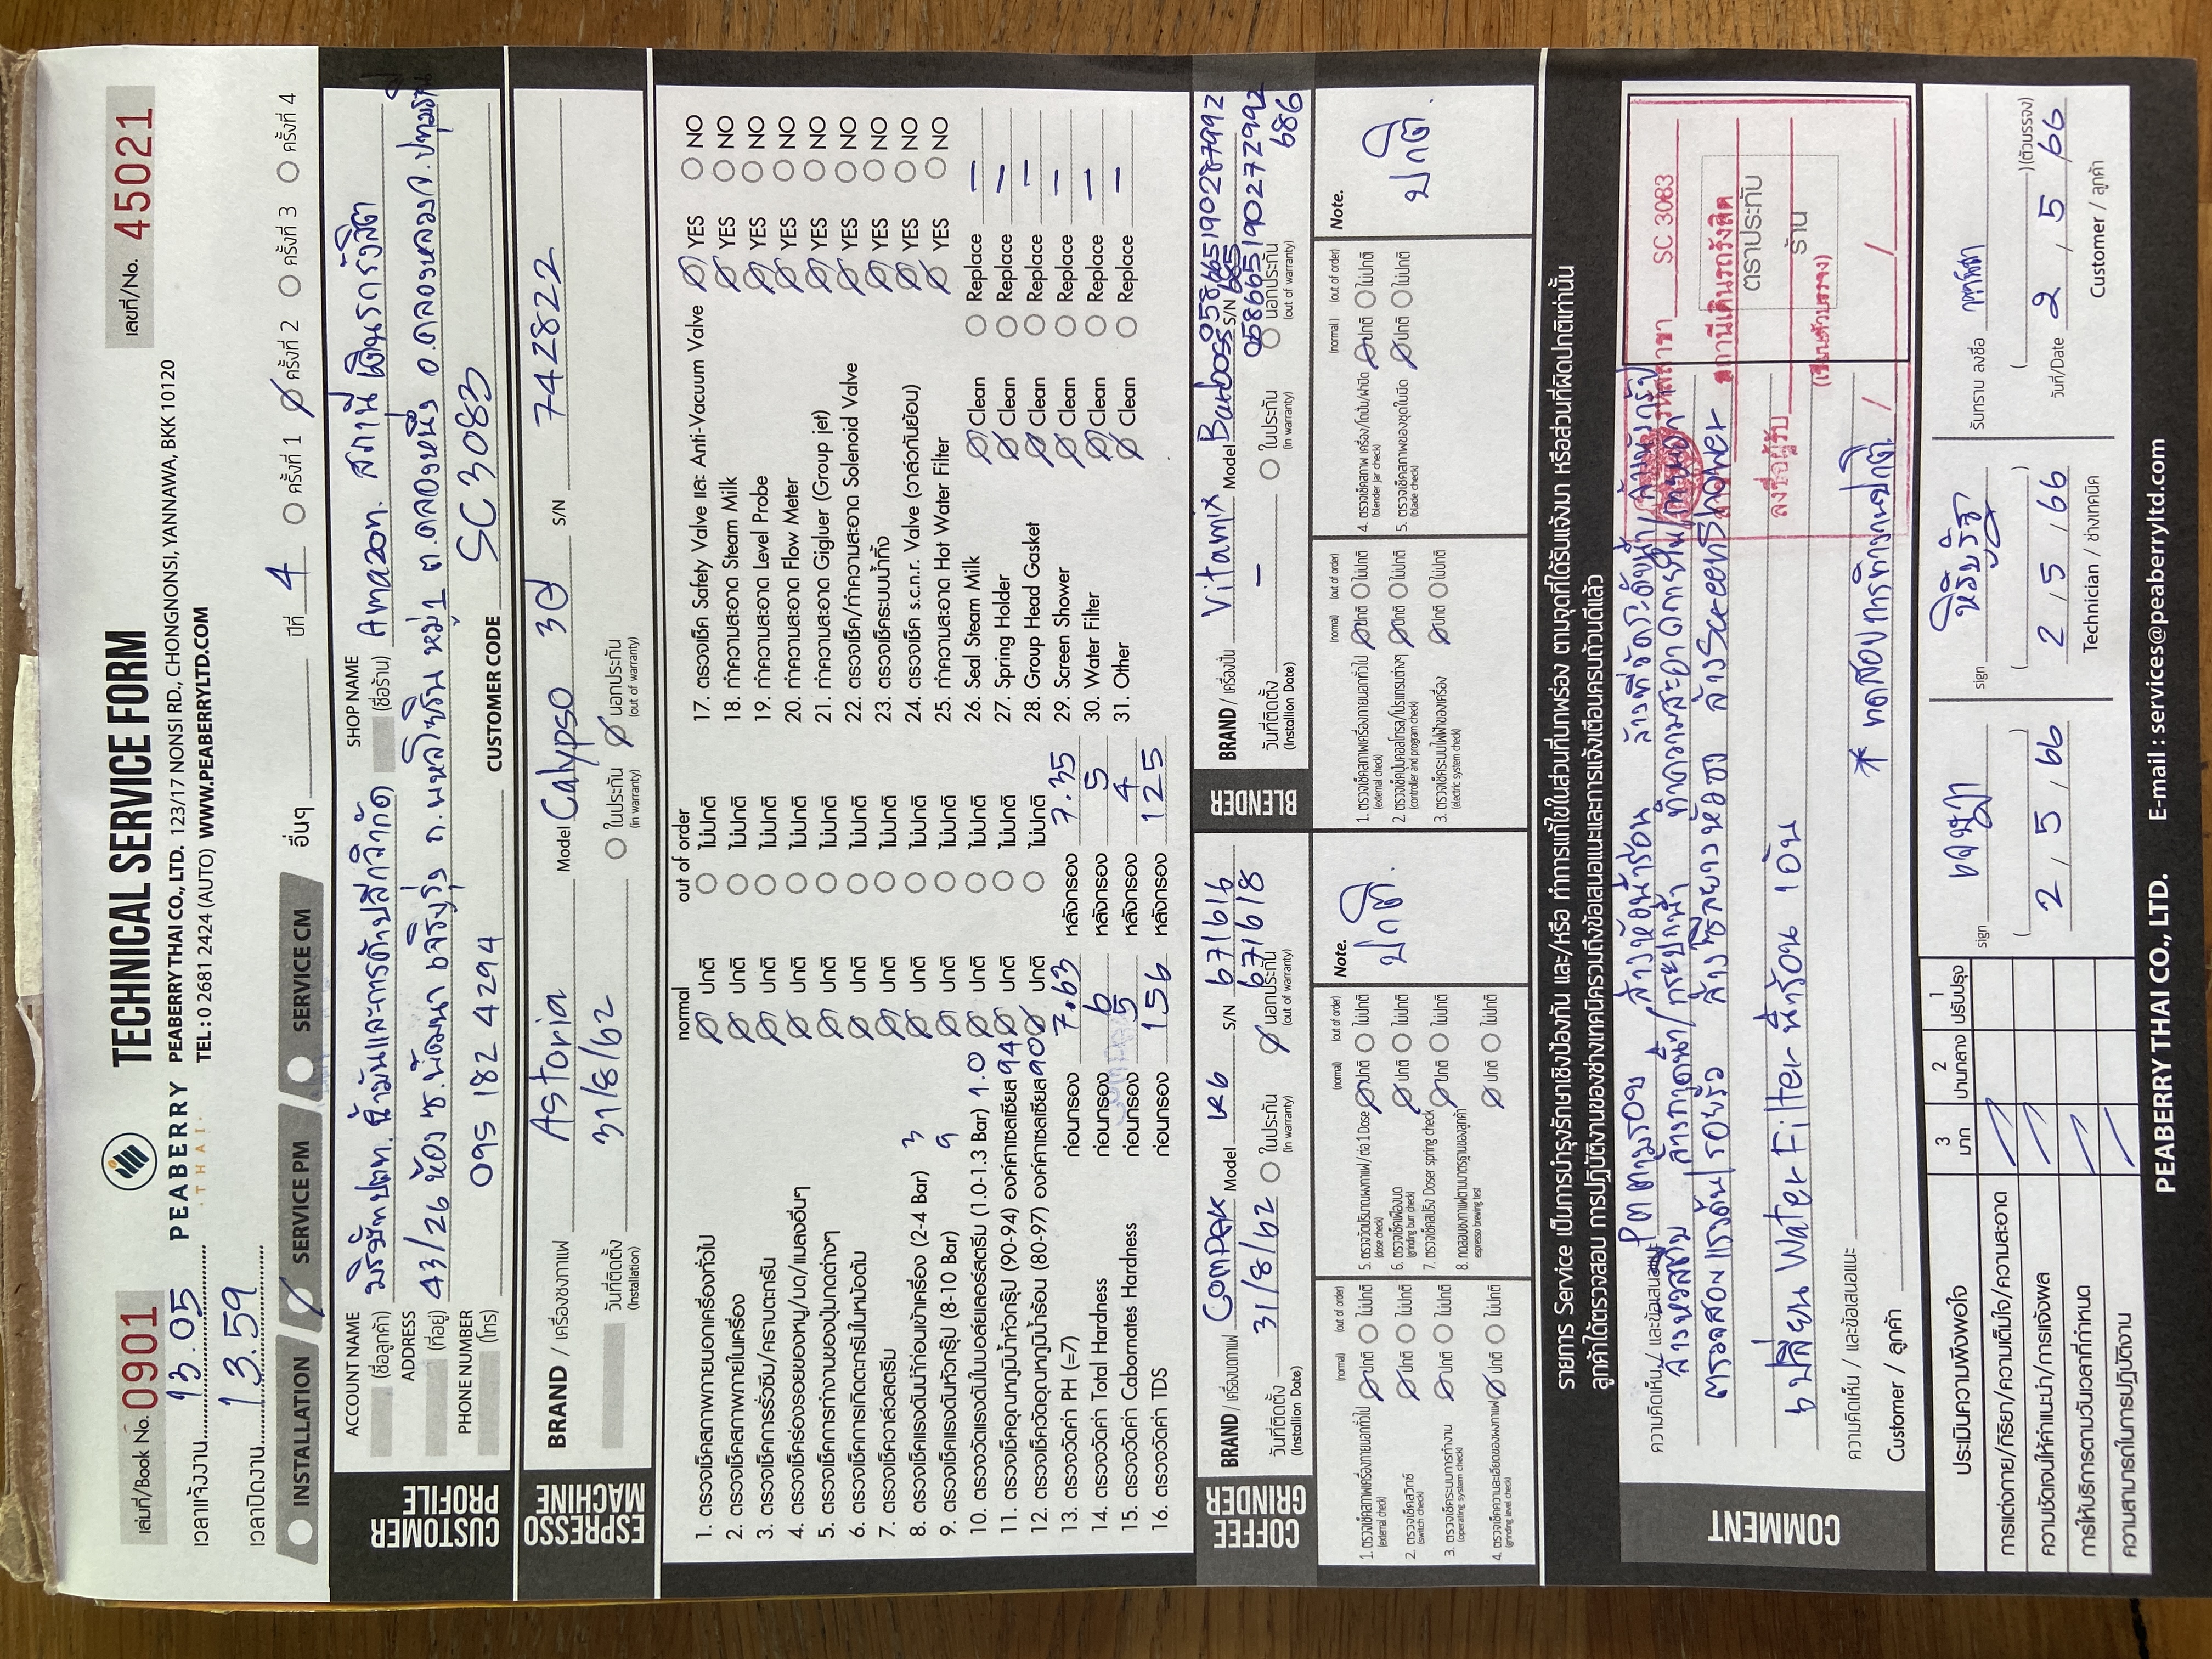 เล่มที่/Book No. 0901
PEABERRY
· THAI ·
TECHNICAL SERVICE FORM
PEABERRY THAI CO., LTD. 123/17 NONSI RD., CHONGNONSI, YANNAWA, BKK 10120
TEL : 0 2681 2424 (AUTO) WWW.PEABERRYLTD.COM
เลขที่/No. 45021
เวลาแจ้งงาน 13.05
เวลาปิดงาน 13.59
INSTALLATION SERVICE PM SERVICE CM อื่นๆ ปีที่ 4 ครั้งที่ 1 ครั้งที่ 2 ครั้งที่ 3 ครั้งที่ 4
CUSTOMER PROFILE
ACCOUNT NAME (ชื่อลูกค้า) บริษัท ปตท. น้ำมันและการค้าปลีกจำกัด SHOP NAME (ชื่อร้าน) Amazon. สถานีเดินรถรังสิต
ADDRESS (ที่อยู่) 43/26 ห้อง ซ.พัฒนา เจริญรุ่ง ถ.พหลโยธิน หมู่1 ต.คลองหนึ่ง อ.คลองหลวง จ.ปทุมธานี
PHONE NUMBER (โทร) 095 182 4294 CUSTOMER CODE SC 3083
ESPRESSO MACHINE
BRAND / เครื่องชงกาแฟ Astoria Model Calypso 3G S/N 742822
วันที่ติดตั้ง (Installation) 31/8/62 ในประกัน (in warranty) นอกประกัน (out of warranty)
normal out of order
1. ตรวจเช็คสภาพภายนอกเครื่องทั่วไป ปกติ ไม่ปกติ
2. ตรวจเช็คสภาพภายในเครื่อง ปกติ ไม่ปกติ
3. ตรวจเช็คการรั่วซึม/คราบตะกรัน ปกติ ไม่ปกติ
4. ตรวจเช็คร่องรอยของหนู/มด/แมลงอื่นๆ ปกติ ไม่ปกติ
5. ตรวจเช็คการทำงานของปุ่มกดต่างๆ ปกติ ไม่ปกติ
6. ตรวจเช็คการเกิดตะกรันในหม้อต้ม ปกติ ไม่ปกติ
7. ตรวจเช็ควาล์วสตรีม ปกติ ไม่ปกติ
8. ตรวจเช็คแรงดันน้ำก่อนเข้าเครื่อง (2-4 Bar) 3 ปกติ ไม่ปกติ
9. ตรวจเช็คแรงดันหัวกรุ๊ป (8-10 Bar) 9 ปกติ ไม่ปกติ
10. ตรวจวัดแรงดันในบอล์ยเลอร์สตรีม (1.0-1.3 Bar) 1.0 ปกติ ไม่ปกติ
11. ตรวจเช็คอุณหภูมิน้ำหัวกรุ๊ป (90-94) องค์ศาเซลเซียส 94 ปกติ ไม่ปกติ
12. ตรวจเช็ควัดอุณหภูมิน้ำร้อน (80-97) องค์ศาเซลเซียส 90 ปกติ ไม่ปกติ
13. ตรวจวัดค่า PH (=7) ก่อนกรอง 7.63 หลังกรอง 7.35
14. ตรวจวัดค่า Total Hardness ก่อนกรอง 6 หลังกรอง 5
15. ตรวจวัดค่า Cabornates Hardness ก่อนกรอง 5 หลังกรอง 4
16. ตรวจวัดค่า TDS ก่อนกรอง 156 หลังกรอง 125
17. ตรวจเช็ค Safety Valve และ Anti-Vacuum Valve YES NO
18. ทำความสะอาด Steam Milk YES NO
19. ทำความสะอาด Level Probe YES NO
20. ทำความสะอาด Flow Meter YES NO
21. ทำความสะอาด Gigluer (Group jet) YES NO
22. ตรวจเช็ค/ทำความสะอาด Solenoid Valve YES NO
23. ตรวจเช็คระบบน้ำทิ้ง YES NO
24. ตรวจเช็ค s.c.n.r. Valve (วาล์วกันย้อน) YES NO
25. ทำความสะอาด Hot Water Filter YES NO
26. Seal Steam Milk Clean Replace -
27. Spring Holder Clean Replace -
28. Group Head Gasket Clean Replace -
29. Screen Shower Clean Replace -
30. Water Filter Clean Replace -
31. Other Clean Replace -
COFFEE GRINDER
BRAND / เครื่องบดกาแฟ COMPAK Model K6 S/N 671616
671618
วันที่ติดตั้ง (Installion Date) 31/8/62 ในประกัน (in warranty) นอกประกัน (out of warranty)
BLENDER
BRAND / เครื่องปั่น Vitamix Model Barboss S/N 058665190287992
685
058665190272992
686
วันที่ติดตั้ง (Installion Date) - ในประกัน (in warranty) นอกประกัน (out of warranty)
(normal) (out of order)
1. ตรวจเช็คสภาพเครื่องภายนอกทั่วไป (external check) ปกติ ไม่ปกติ
2. ตรวจเช็คสวิทช์ (switch check) ปกติ ไม่ปกติ
3. ตรวจเช็คระบบการทำงาน (operating system check) ปกติ ไม่ปกติ
4. ตรวจเช็คความละเอียดของผงกาแฟ (grinding level check) ปกติ ไม่ปกติ
(normal) (out of order)
5. ตรวจวัดปริมาณผงกาแฟ/ต่อ 1 Dose (dose check) ปกติ ไม่ปกติ
6. ตรวจเช็คเฟืองบด (grinding burr check) ปกติ ไม่ปกติ
7. ตรวจเช็คสปริง Doser spring check ปกติ ไม่ปกติ
8. ทดสอบชงกาแฟตามมาตรฐานของลูกค้า espresso brewing test ปกติ ไม่ปกติ
Note.
ปกติ.
(normal) (out of order)
1. ตรวจเช็คสภาพเครื่องภายนอกทั่วไป (external check) ปกติ ไม่ปกติ
2. ตรวจเช็คปุ่มคอลโทรล/โปรแกรมต่างๆ (controller and program check) ปกติ ไม่ปกติ
3. ตรวจเช็คระบบไฟฟ้าของเครื่อง (electric system check) ปกติ ไม่ปกติ
(normal) (out of order)
4. ตรวจเช็คสภาพ เครื่อง/โถปั่น/ฝาปิด (blender jar check) ปกติ ไม่ปกติ
5. ตรวจเช็คสภาพของชุดใบมีด (blade check) ปกติ ไม่ปกติ
Note.
ปกติ.
รายการ Service เป็นการบำรุงรักษาเชิงป้องกัน และ/หรือ ทำการแก้ไขในส่วนที่บกพร่อง ตามจุดที่ได้รับแจ้งมา หรือส่วนที่ผิดปกติเท่านั้น
ลูกค้าได้ตรวจสอบ การปฏิบัติงานของช่างเทคนิครวมถึงข้อเสนอแนะและการแจ้งเตือนครบถ้วนดีแล้ว
COMMENT
ความคิดเห็น / และข้อเสนอแนะ ตามรอบ ล้างหัวน้ำร้อน ล้างที่วัดระดับน้ำ
ล้างหัวสตีม ล้างถาดน้ำ/กระปุกน้ำ ทำความสะอาดภายใน/ภายนอก
ตรวจสอบแรงดัน/รอยรั่ว ล้างซีลยางหัวชง ล้างScreen Shower
เปลี่ยน Water Filter น้ำร้อน 1 อัน
ความคิดเห็น / และข้อเสนอแนะ
* ทดสอบการทำงานปกติ
Customer / ลูกค้า
รหัสสาขา SC 3083
สถานีเดินรถรังสิต
ตราประทับ
ร้าน
ลงชื่อผู้รับ
(เขียนตัวบรรจง)
/ /
ประเมินความพึงพอใจ 3 มาก 2 ปานกลาง 1 ปรับปรุง
การแต่งกาย/กิริยา/ความเต็มใจ/ความสะอาด
ความชัดเจนให้คำแนะนำ/การแจ้งผล
การให้บริการตามวันเวลาที่กำหนด
ความสามารถในการปฏิบัติงาน
sign
2 / 5 / 66
sign
2 / 5 / 66
Technician / ช่างเทคนิค
รับทราบ ลงชื่อ
(ตัวบรรจง)
วันที่/Date 2 / 5 / 66
Customer / ลูกค้า
PEABERRY THAI CO., LTD. E-mail : services@peaberryltd.com